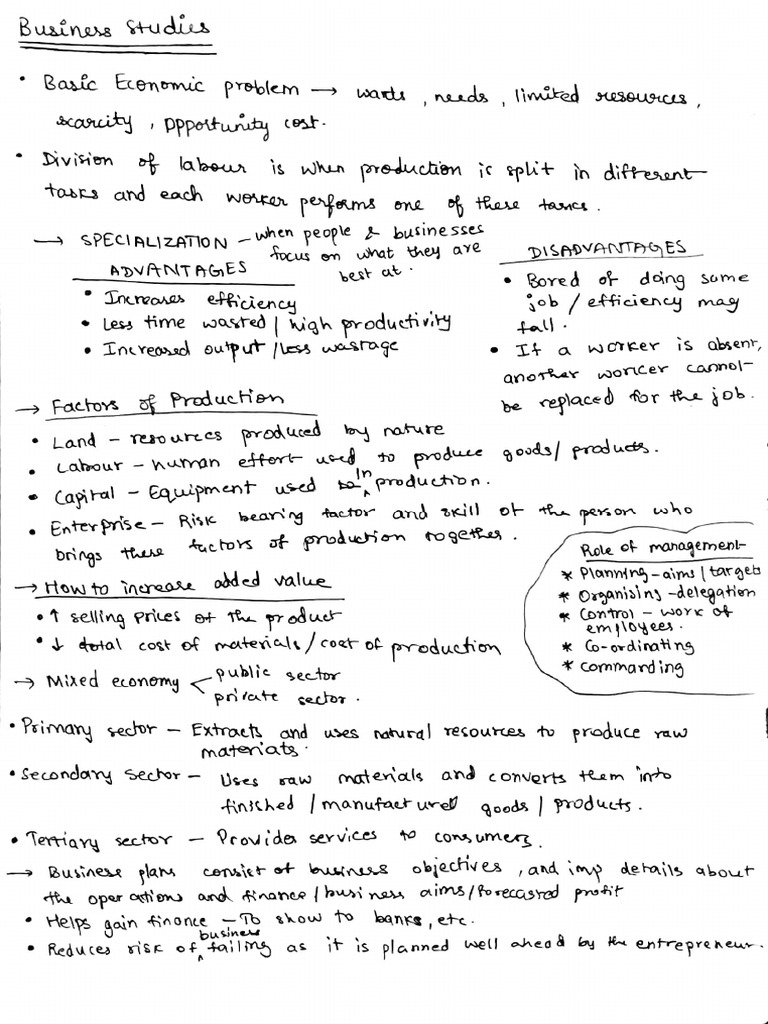 Business Studies
• Basic Economic problem → wants, needs, limited resources,
scarcity, opportunity cost.
• Division of labour is when production is split in different
tasks and each worker performs one of these tasks.
→ SPECIALIZATION – when people & businesses
focus on what they are
best at.
ADVANTAGES
• Increases efficiency
• Less time wasted / high productivity
• Increased output / less wastage
DISADVANTAGES
• Bored of doing same
job / efficiency may
fall.
• If a worker is absent,
another worker cannot
be replaced for the job.
→ Factors of Production
• Land – resources produced by nature
• Labour – human effort used to produce goods / products.
• Capital – Equipment used in production.
• Enterprise – Risk bearing factor and skill of the person who
brings these factors of production together.
Role of management
* Planning – aims / targets
* Organising – delegation
* Control – work of
employees.
* Co-ordinating
* commanding
→ How to increase added value
• ↑ selling prices of the product
• ↓ total cost of materials / cost of production
→ Mixed economy < public sector
private sector.
• Primary sector – Extracts and uses natural resources to produce raw
materials.
• Secondary sector – Uses raw materials and converts them into
finished / manufactured goods / products.
• Tertiary sector – Provides services to consumers.
→ Business plans consist of business objectives, and imp details about
the operations and finance / business aims / forecasted profit
• Helps gain finance – To show to banks, etc.
• Reduces risk of business failing as it is planned well ahead by the entrepreneur.